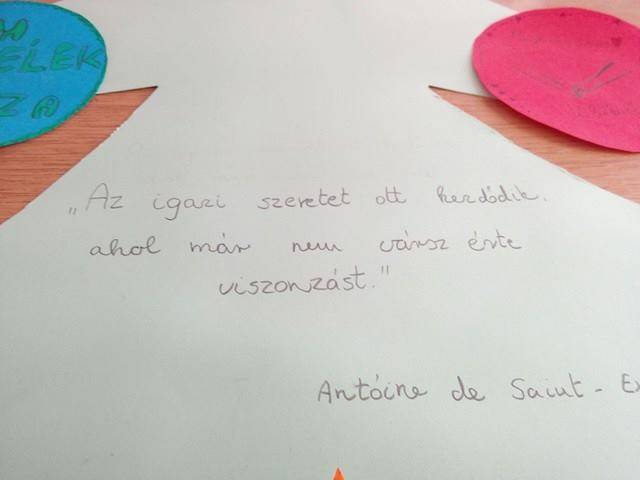 ÉLEK
„Az igazi szeretet ott kezdődik,
ahol már nem vársz érte
viszonzást."
Antóine de Saint - Ex